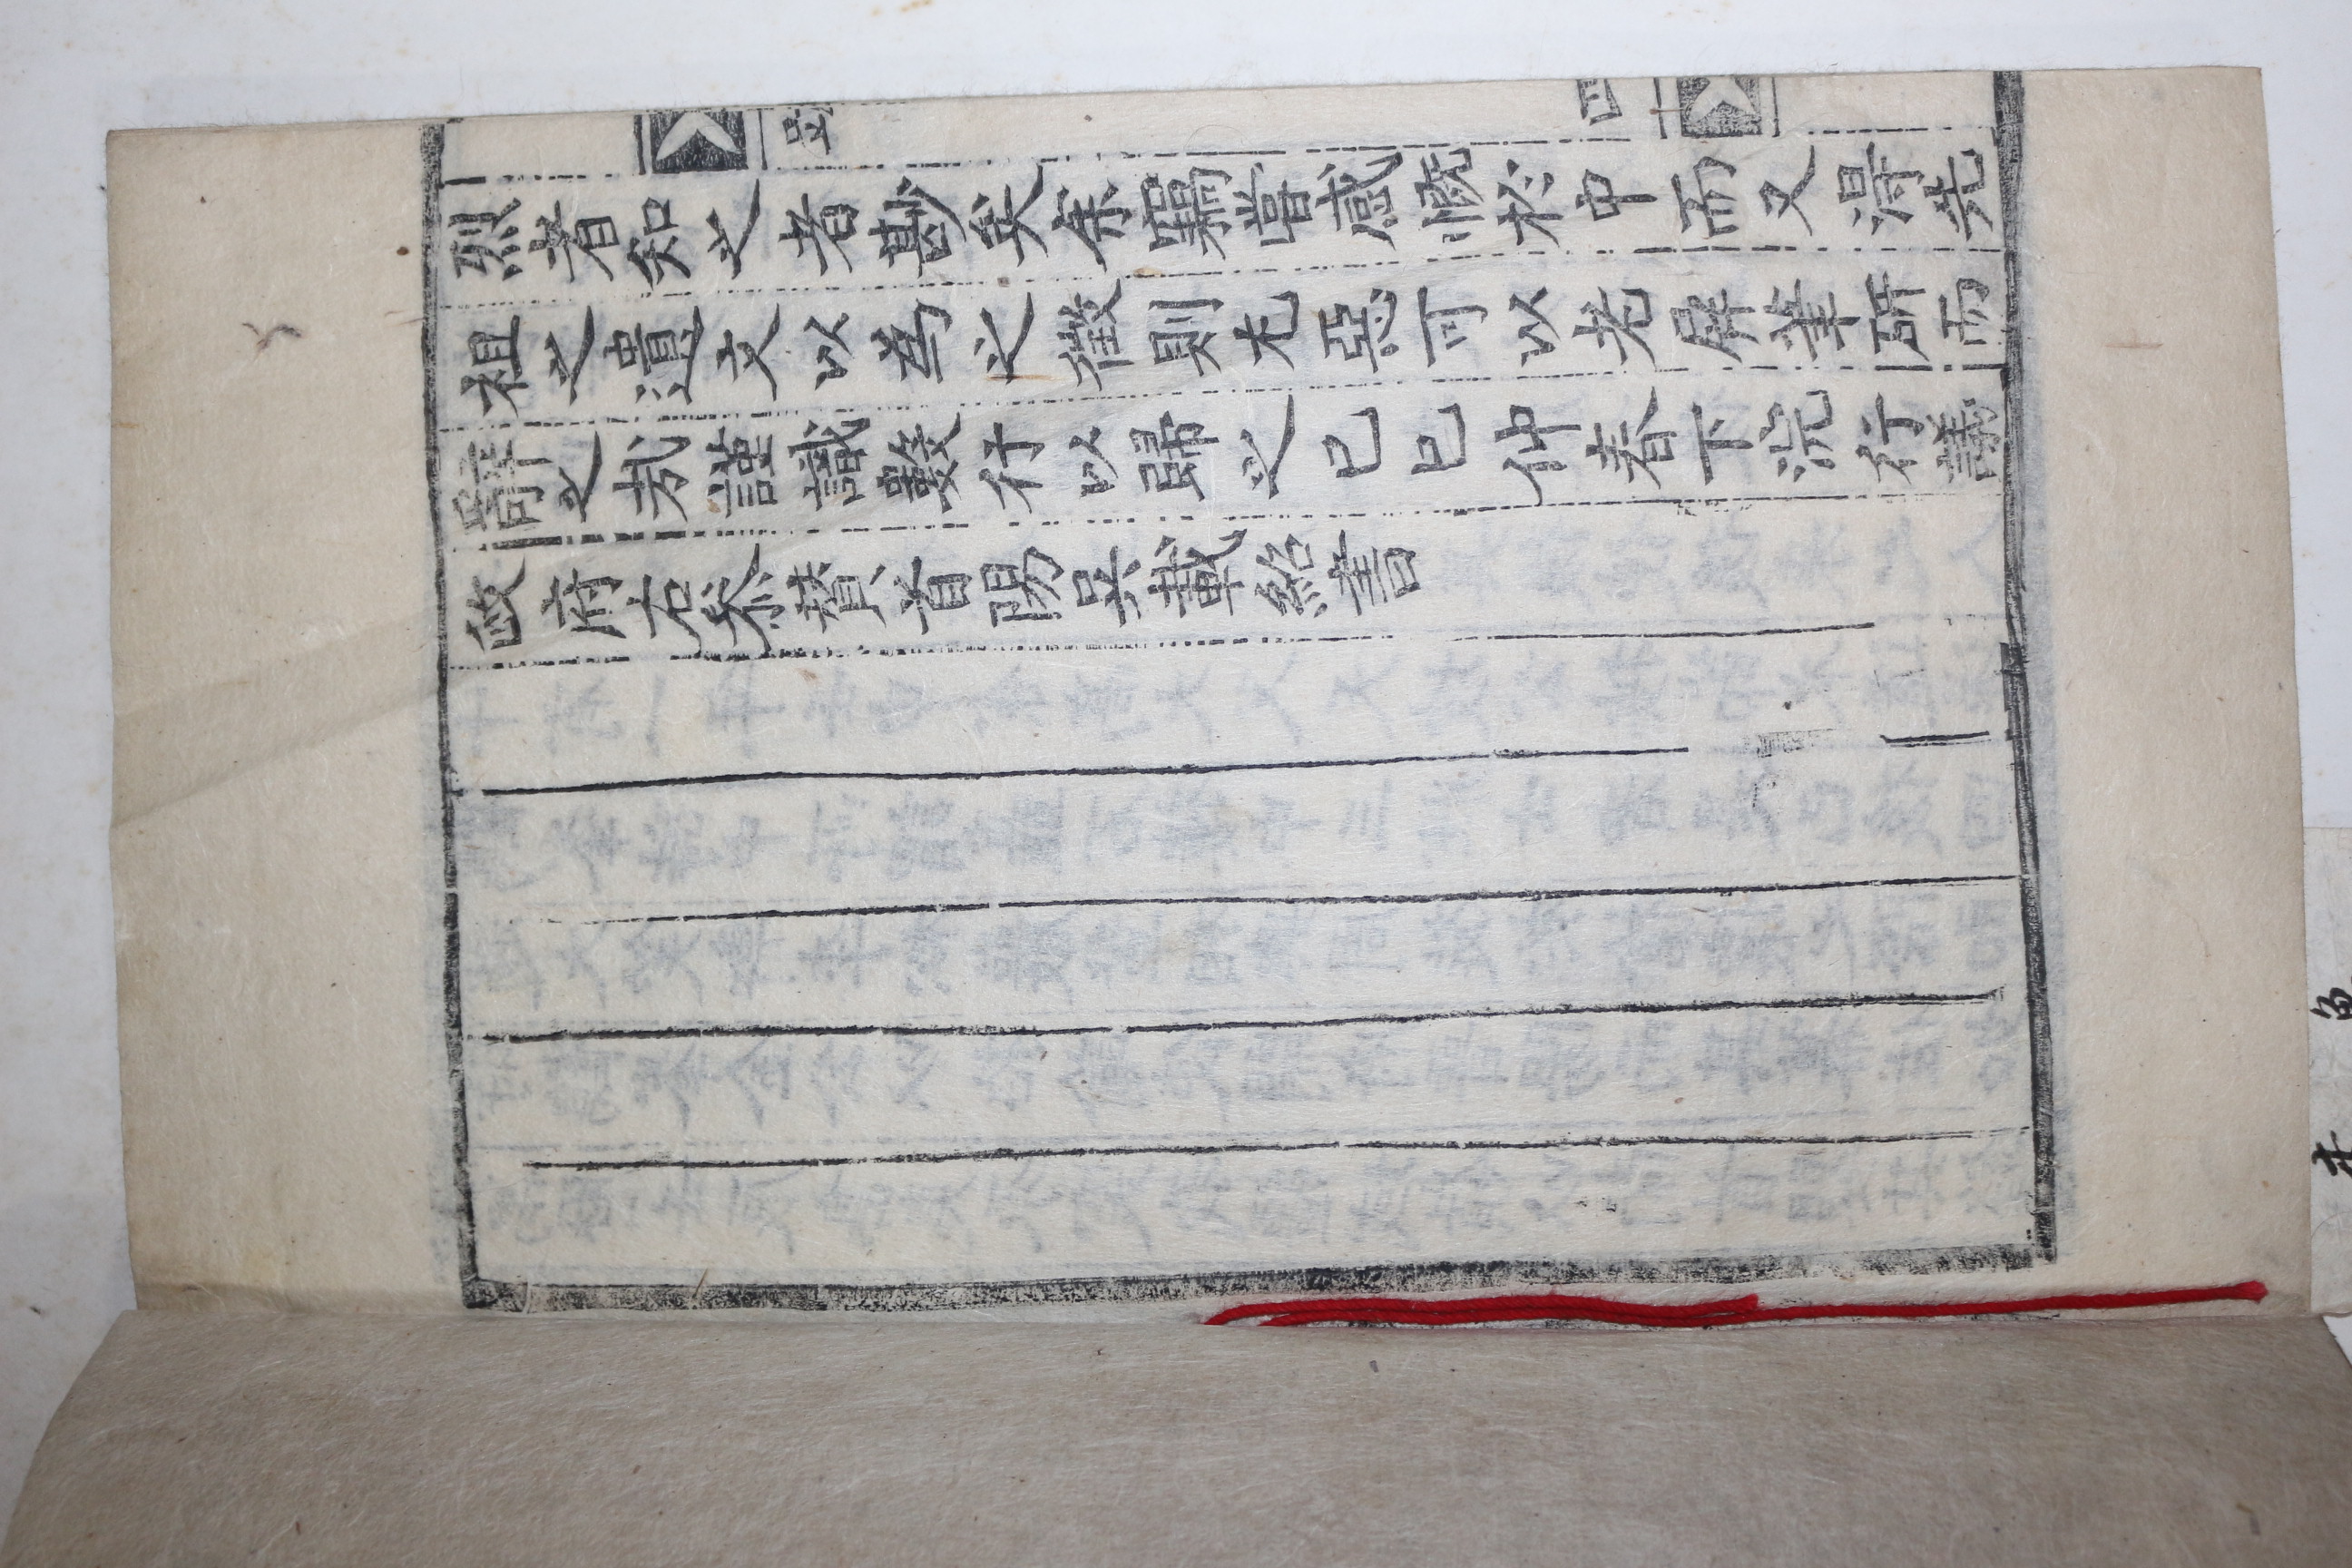 烈者知之者尠矣余竊嘗感慨於中而又得先
祖之遺文以為之徵則尤惡可以老屛筆硏而
辭之㢤謹識數行以歸之己巳仲春下浣行議
政府右叅賛首陽吳載紹書
跋
四